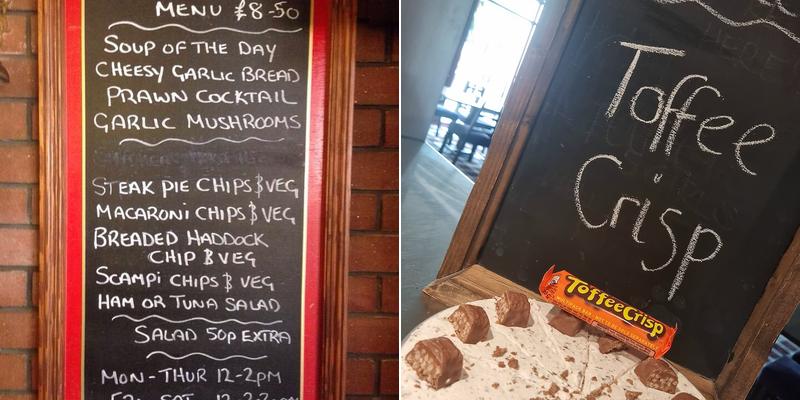 MENU £8-50
SOUP OF THE DAY
CHEESY GARLIC BREAD
PRAWN COCKTAIL
GARLIC MUSHROOMS
STEAK PIE CHIPS & VEG
MACARONI CHIPS & VEG
BREADED HADDOCK
CHIP & VEG
SCAMPI CHIPS & VEG
HAM OR TUNA SALAD
SALAD 50P EXTRA
MON-THUR 12-2PM
Toffee
Crisp
ToffeeCrisp